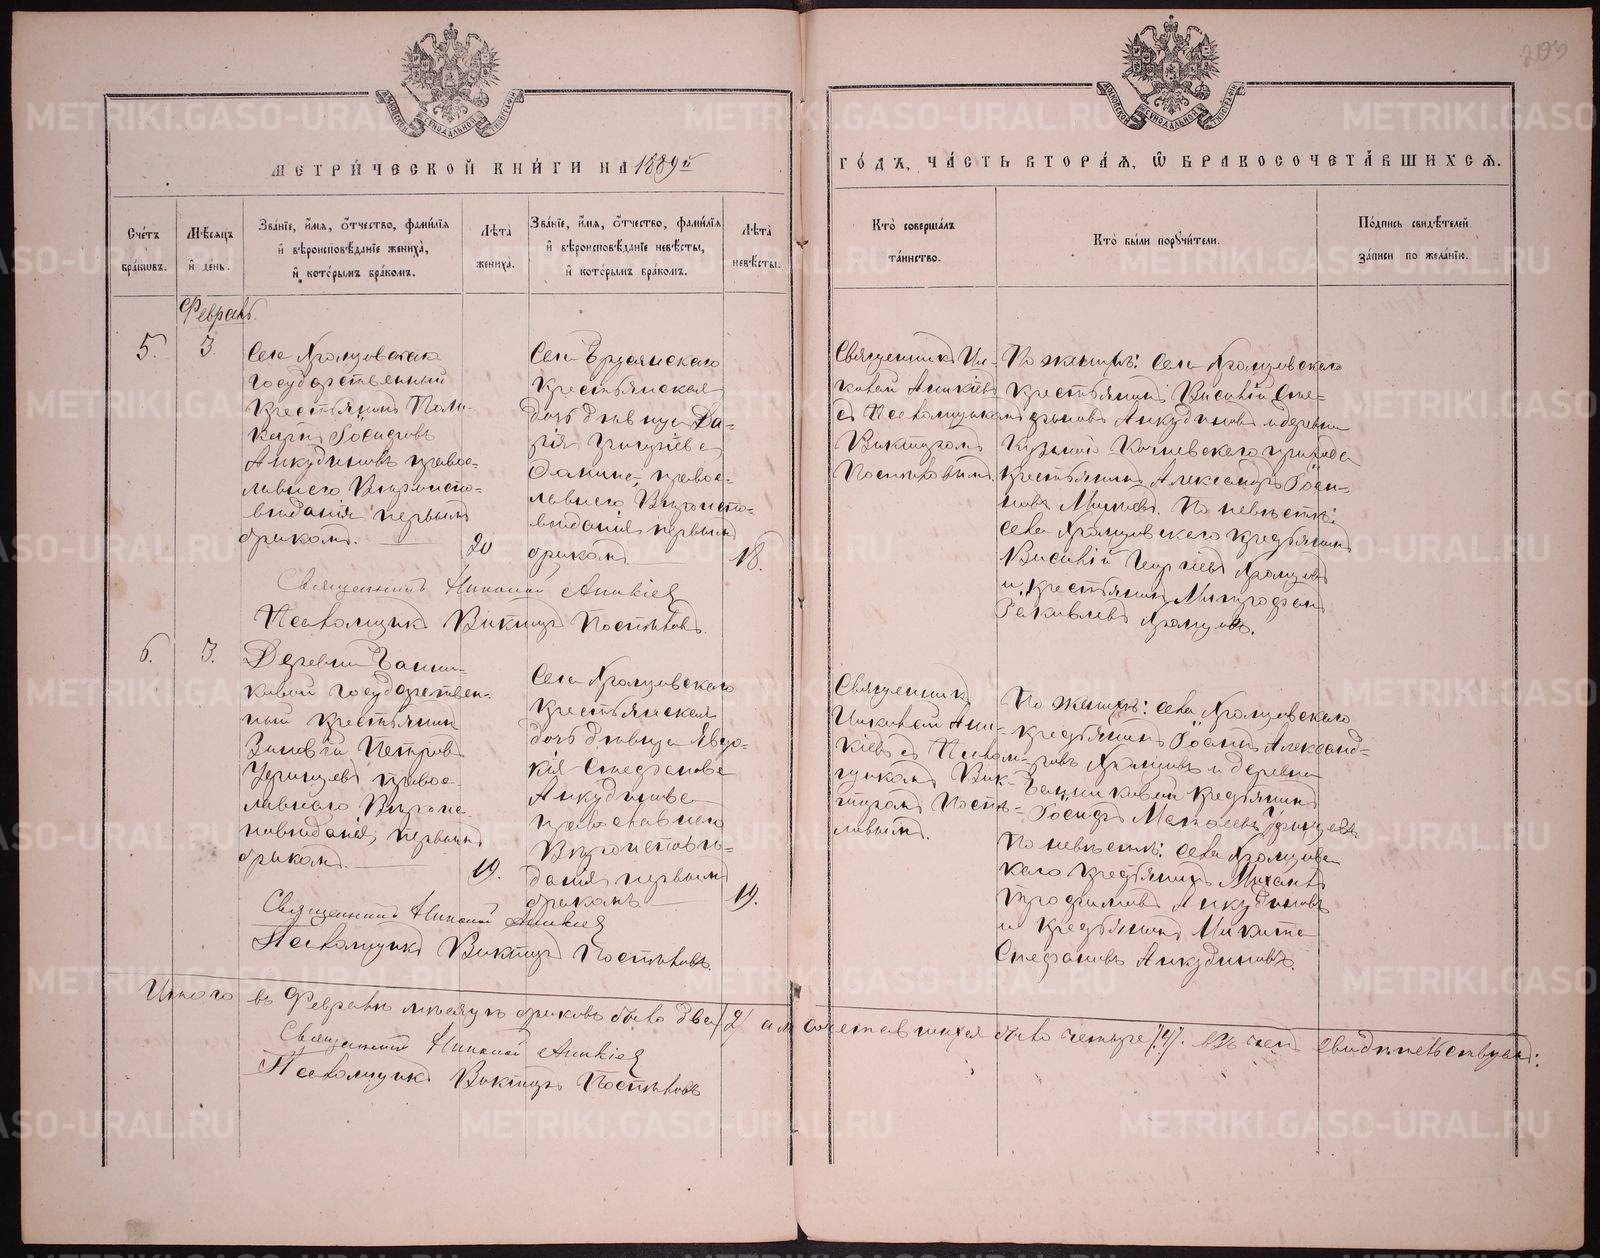 203
МЕТРИЧЕСКОЙ КНИГИ НА 1889й
ГОДЪ, ЧАСТЬ ВТОРАЯ, Ѡ БРАКОСОЧЕТАВШИХСЯ.
Счетъ браковъ.
Мѣсяцъ и день.
Званіе, имя, отчество, фамилія
и вѣроисповѣданіе жениха,
и которымъ бракомъ.
Лѣта жениха.
Званіе, имя, отчество, фамилія
и вѣроисповѣданіе невѣсты,
и которымъ бракомъ.
Лѣта невѣсты.
Кто совершалъ
таинство.
Кто были поручители.
Подпись свидѣтелей
записи по желанію.
Февраль.
5.
3.
Села Храмцовскаго
государственный
крестьянинъ Поли-
карпъ Іосифовъ
Анкудиновъ правос-
лавнаго Вѣроиспо-
вѣданія первымъ
бракомъ.
20
Села
крестьянская
дочь дѣвица Да-
рія Григоріева
правос-
лавнаго Вѣроиспо-
вѣданія первымъ
бракомъ
18.
Священникъ Ни-
колай Аникіевъ
съ Псаломщикомъ
Викторомъ
Поспѣловымъ.
По женихѣ: Села Храмцовскаго
крестьянинъ Василій Сте-
фановъ Анкудиновъ и деревни
прихода
крестьянинъ Александръ Іоан-
новъ По невѣстѣ:
села Храмцовскаго крестьянинъ
Василій Георгіевъ Храмцовъ
и крестьянинъ Митрофанъ
Іаковлевъ Храмцовъ.
Священникъ Николай Аникіевъ
Псаломщикъ Викторъ Поспѣловъ.
6.
3.
Деревни
государствен-
ный крестьянинъ
Зиновій Петровъ
правос-
лавнаго Вѣроис-
повѣданія, первымъ
бракомъ.
19.
Села Храмцовскаго
крестьянская
дочь дѣвица Евдо-
кія Стефанова
Анкудинова
православнаго
Вѣроисповѣ-
данія первымъ
бракомъ
19.
Священникъ
Николай Ани-
кіевъ съ Псалом-
щикомъ Вик-
торомъ Поспѣ-
ловымъ.
По женихѣ: села Храмцовскаго
крестьянинъ Іоаннъ Александ-
ровъ Храмцовъ и деревни
крестьянинъ
Іосифъ
По невѣстѣ: села Храмцовс-
каго крестьянинъ Михаилъ
Трофимовъ Анкудиновъ
и крестьянинъ Никита
Стефановъ Анкудиновъ.
Священникъ Николай Аникіевъ
Псаломщикъ Викторъ Поспѣловъ.
Итого въ Февралѣ мѣсяцѣ браковъ было два /2/ а сочетавшихся было четыре /4/. Въ чемъ свидѣтельствуемъ:
Священникъ Николай Аникіевъ
Псаломщикъ Викторъ Поспѣловъ
METRIKI.GASO-URAL.RU